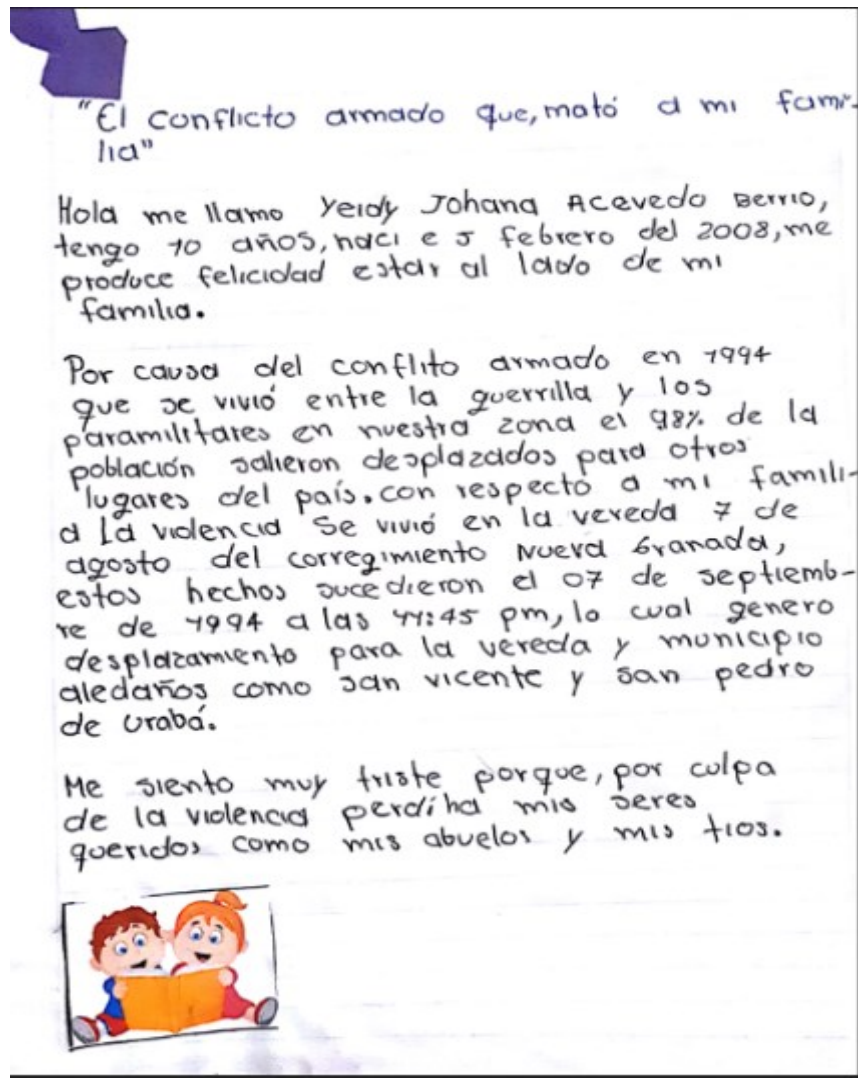 "El conflicto armado que, mató a mi fami-
lia"
Hola me llamo Yeidy Johana Acevedo Berrio,
tengo 10 años, naci e 5 febrero del 2008, me
produce felicidad estar al lado de mi
familia.
Por causa del conflito armado en 1994
que se vivió entre la guerrilla y los
paramilitares en nuestra zona el 98% de la
población salieron desplazados para otros
lugares del país. con respecto a mi famili-
a La violencia Se vivió en la vereda 7 de
agosto del corregimiento Nueva Granada,
estos hechos sucedieron el 07 de septiemb-
re de 1994 a las 11:45 pm, lo cual genero
desplazamiento para la vereda y municipio
aledaños como san vicente y san pedro
de Urabá.
Me siento muy triste porque, por culpa
de la violencia perdí ha mis seres
queridos como mis abuelos y mis tios.